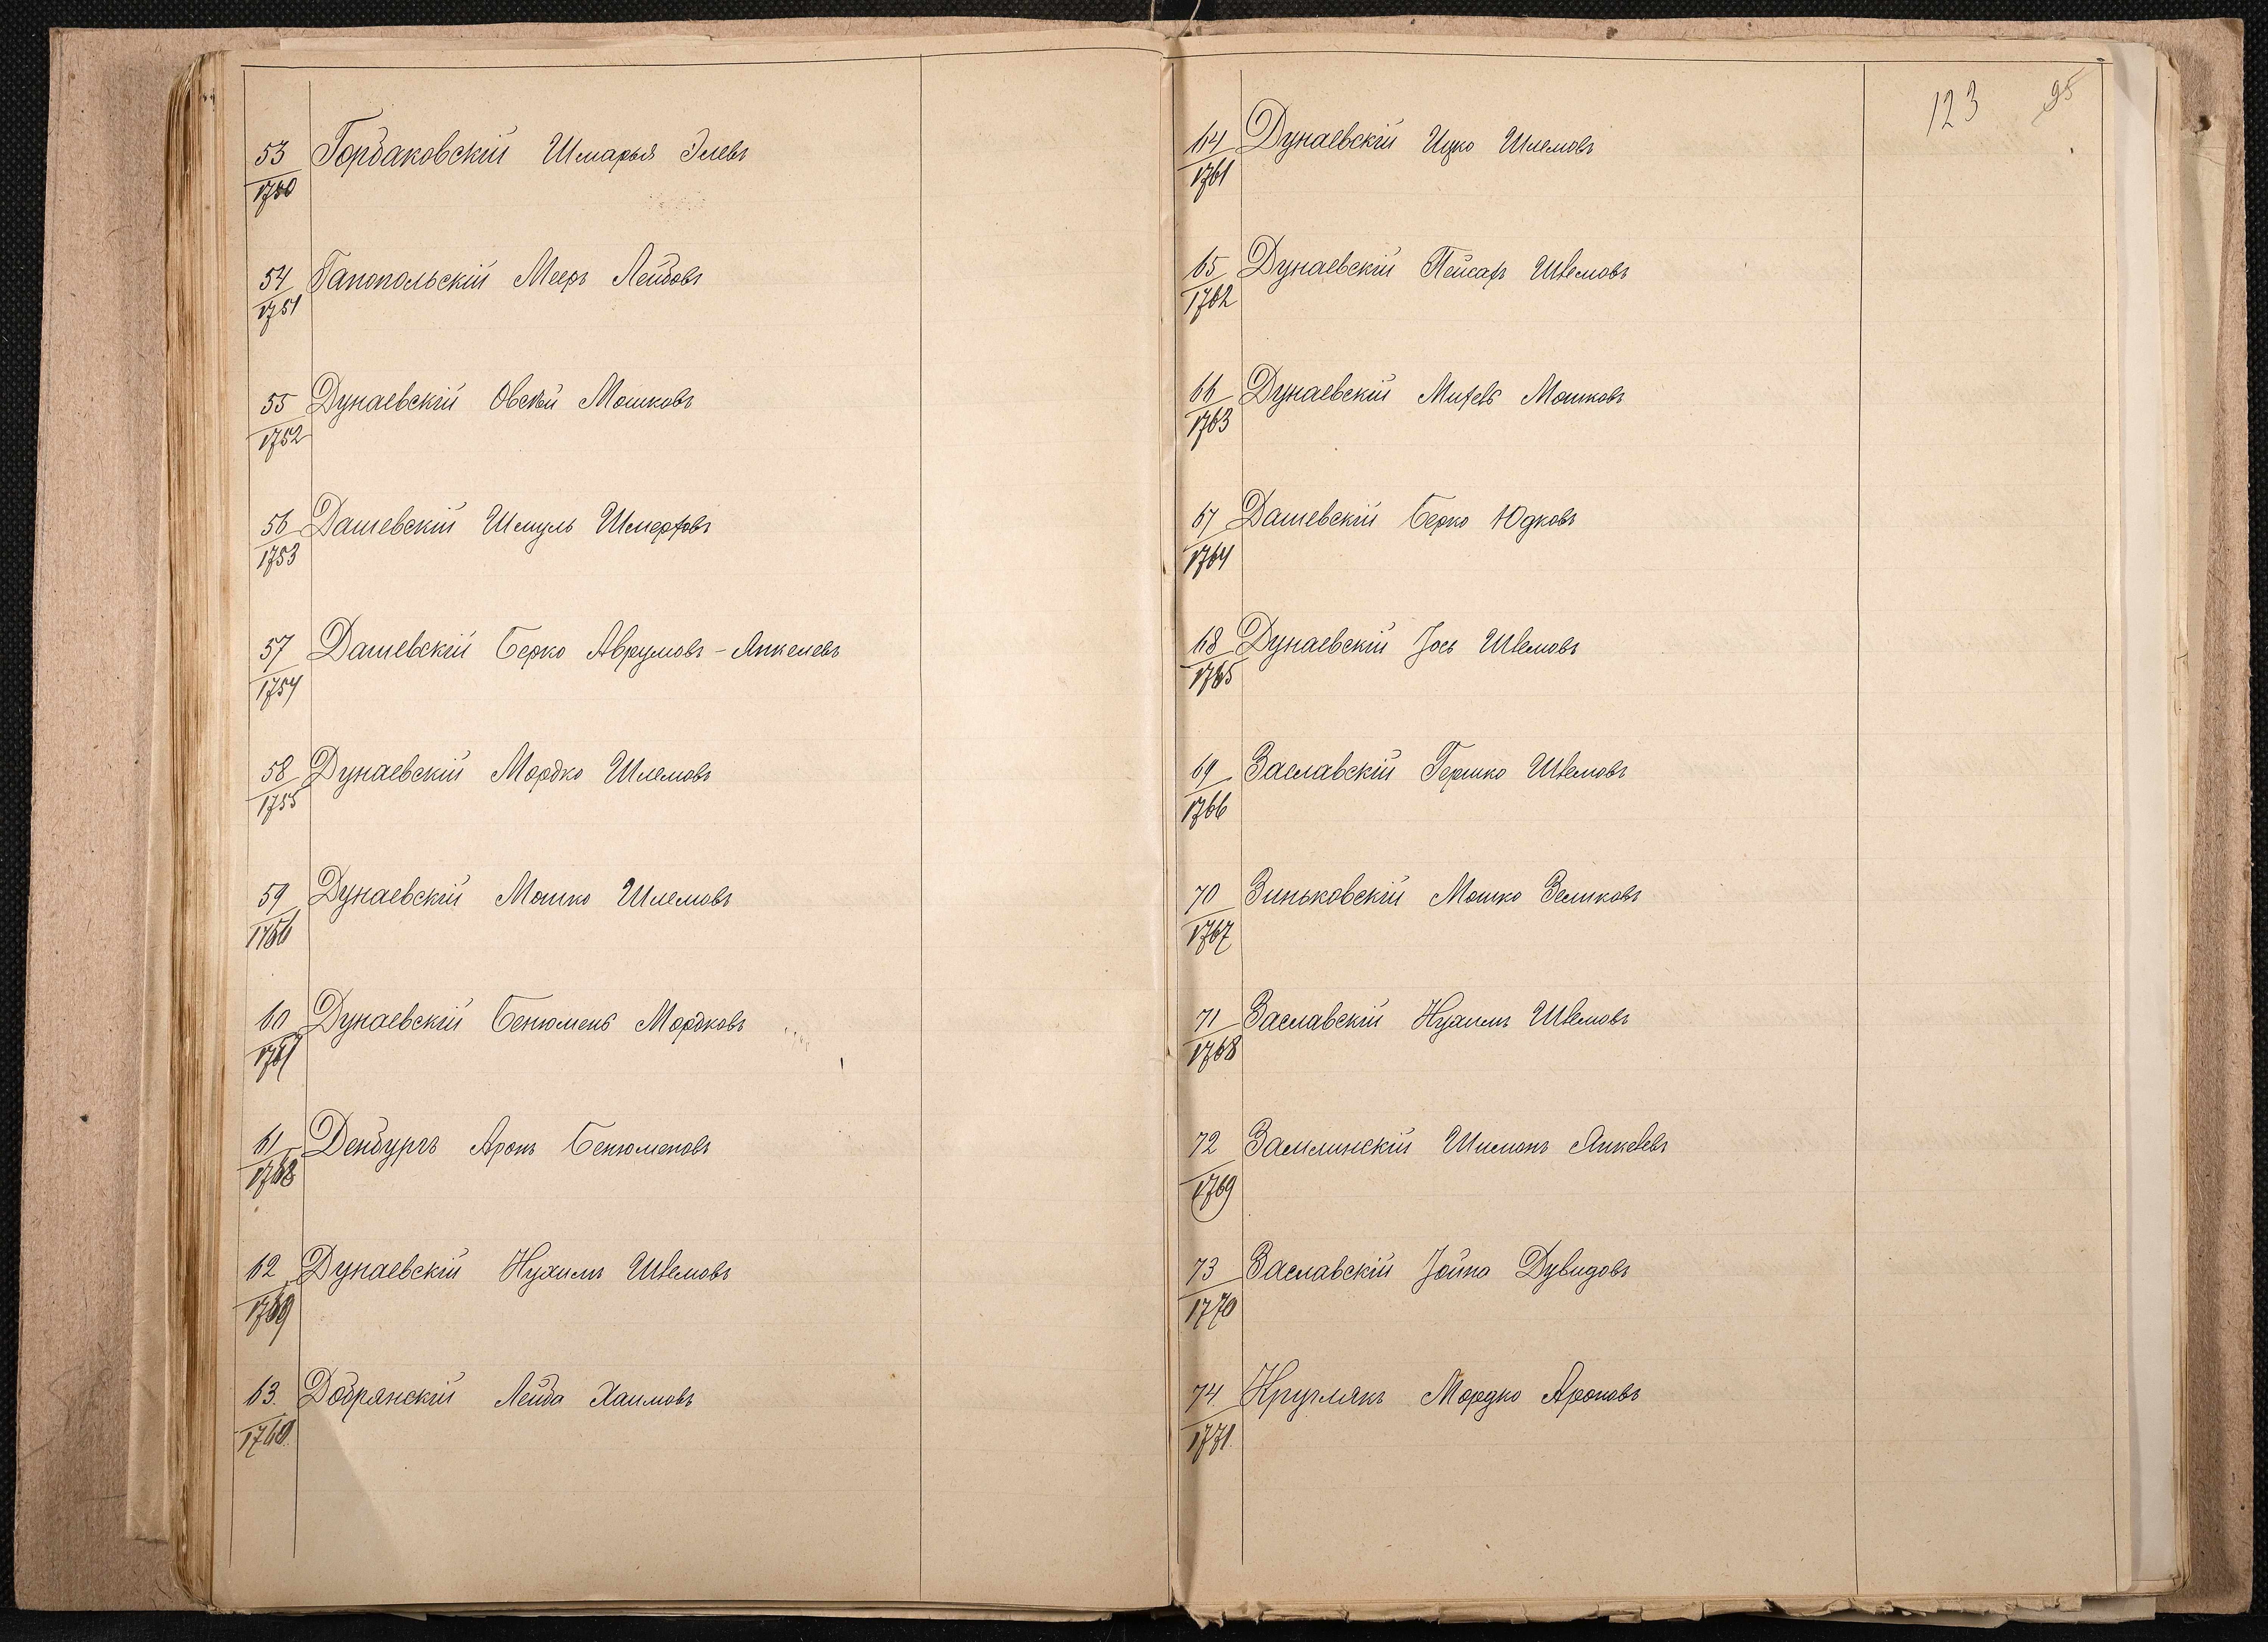 53 Горбаковскій Шмарья Элевъ
1750
54 Гапопольскій Мееръ Лейбовъ
1751
55 Дунаевскій Овсѣй Мошковъ
1752
56 Дашевскій Шмуль Шмерковъ
1753
57 Дашевскій Берко Аврумовъ-Анкелевъ
1754
58 Дунаевскій Мордко Шлемовъ
1755
59 Дунаевскій Мошко Шлемовъ
1756
60 Дунаевскій Бенюменъ Мордковъ
1757
61 Денбургъ Аронъ Бенюменовъ
1758
62 Дунаевскій Нухимъ Шлемовъ
1759
63. Добрянскій Лейба Хаимовъ
1760
123 95
64 Дунаевскій Ицко Шлемовъ
1761
65 Дунаевскій Пейсахъ Шлемовъ
1762
66 Дунаевскій Михель Мошковъ
1763
67 Дашевскій Берко Юдковъ
1764
68 Дунаевскій Іось Шлемовъ
1765
69 Заславскій Гершко Шлемовъ
1766
70 Зиньковскій Мошко Зелиховъ
1767
71 Заславскій Нухимъ Шлемовъ
1768
72 Замлинскій Шимонъ Анкелевъ
1769
73 Заславскій Іойна Дувидовъ
1770
74 Круглякъ Мордко Ароновъ
1771.